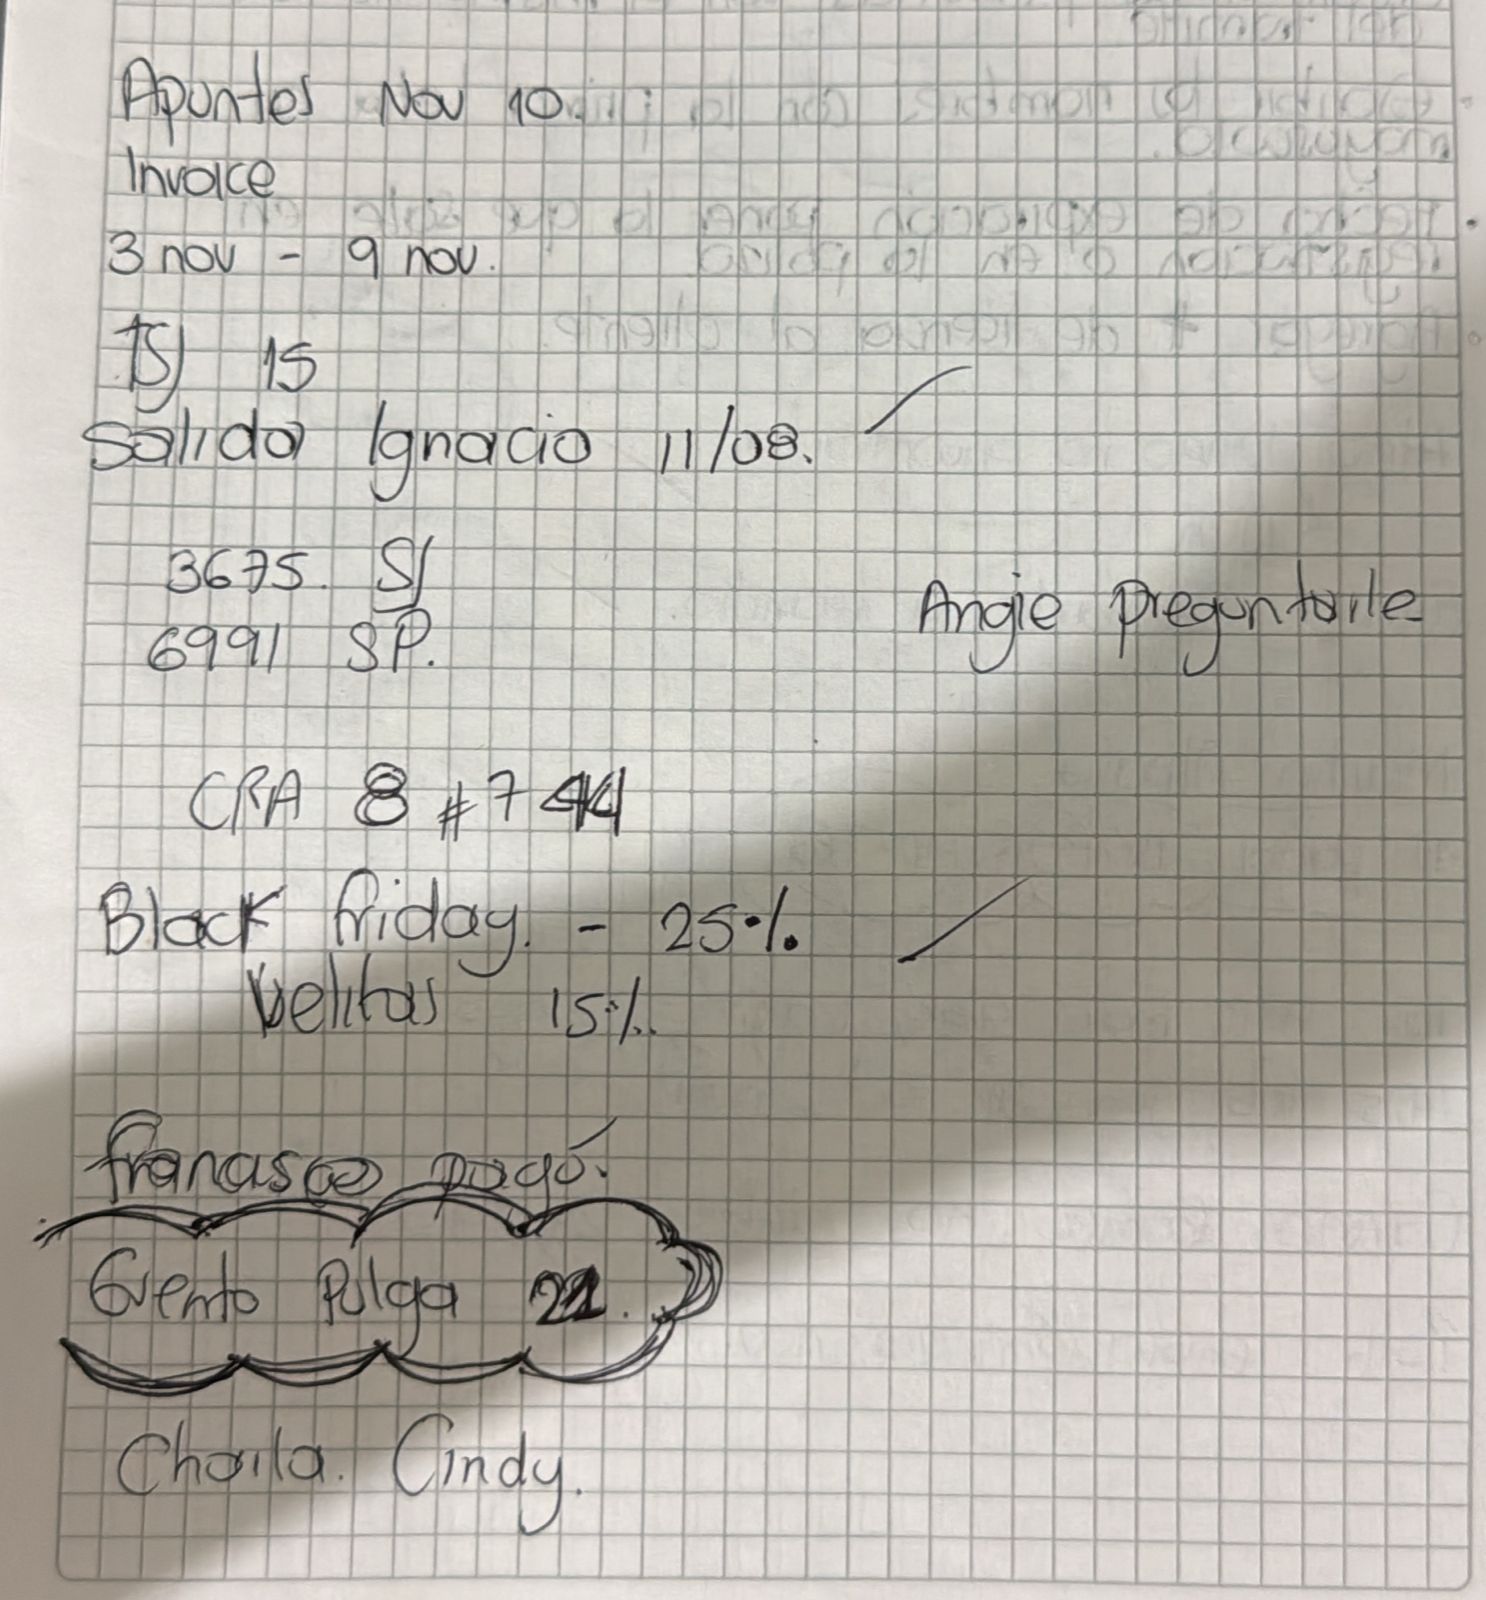 Apuntes Nov 10.
Invoice
3 nov - 9 nov.
TSJ 15
Salida Ignacio 11/08.
3675. SJ
6991 SP.
Angie preguntarle
CRA 8 #7 44
Black friday. - 25%.
Velitas 15%.
francisco pagó.
Evento Pulga 21.
Charla. Cindy.